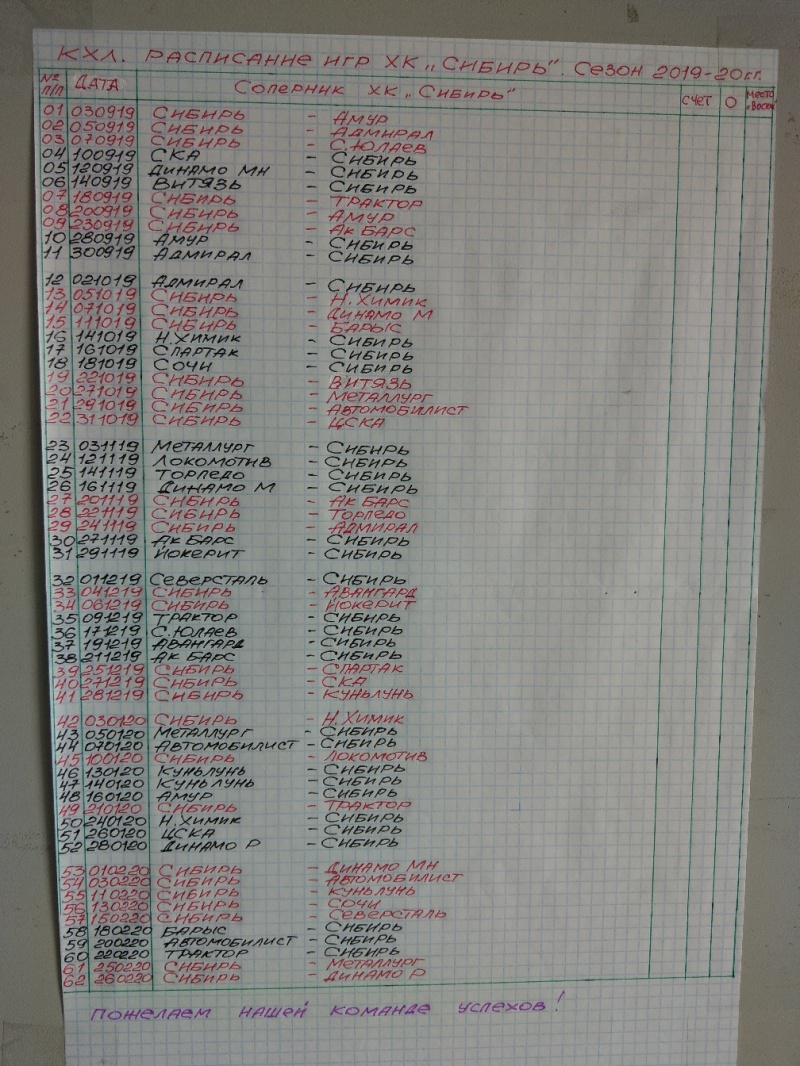 КХЛ. РАСПИСАНИЕ ИГР ХК „СИБИРЬ". СЕЗОН 2019-20гг.
№ п/п ДАТА СОПЕРНИК ХК „СИБИРЬ" СЧЕТ О МЕСТО „ВОСТОК"
01 030919 СИБИРЬ - АМУР
02 050919 СИБИРЬ - АДМИРАЛ
03 070919 СИБИРЬ - С.ЮЛАЕВ
04 100919 СКА - СИБИРЬ
05 120919 ДИНАМО МН - СИБИРЬ
06 140919 ВИТЯЗЬ - СИБИРЬ
07 180919 СИБИРЬ - ТРАКТОР
08 200919 СИБИРЬ - АМУР
09 230919 СИБИРЬ - АК БАРС
10 280919 АМУР - СИБИРЬ
11 300919 АДМИРАЛ - СИБИРЬ
12 021019 АДМИРАЛ - СИБИРЬ
13 051019 СИБИРЬ - Н.ХИМИК
14 071019 СИБИРЬ - ДИНАМО М
15 111019 СИБИРЬ - БАРЫС
16 141019 Н.ХИМИК - СИБИРЬ
17 161019 СПАРТАК - СИБИРЬ
18 181019 СОЧИ - СИБИРЬ
19 221019 СИБИРЬ - ВИТЯЗЬ
20 271019 СИБИРЬ - МЕТАЛЛУРГ
21 291019 СИБИРЬ - АВТОМОБИЛИСТ
22 311019 СИБИРЬ - ЦСКА
23 031119 МЕТАЛЛУРГ - СИБИРЬ
24 121119 ЛОКОМОТИВ - СИБИРЬ
25 141119 ТОРПЕДО - СИБИРЬ
26 161119 ДИНАМО М - СИБИРЬ
27 201119 СИБИРЬ - АК БАРС
28 221119 СИБИРЬ - ТОРПЕДО
29 241119 СИБИРЬ - АДМИРАЛ
30 271119 АК БАРС - СИБИРЬ
31 291119 ЙОКЕРИТ - СИБИРЬ
32 011219 СЕВЕРСТАЛЬ - СИБИРЬ
33 041219 СИБИРЬ - АВАНГАРД
34 061219 СИБИРЬ - ЙОКЕРИТ
35 091219 ТРАКТОР - СИБИРЬ
36 171219 С.ЮЛАЕВ - СИБИРЬ
37 191219 АВАНГАРД - СИБИРЬ
38 211219 АК БАРС - СИБИРЬ
39 251219 СИБИРЬ - СПАРТАК
40 271219 СИБИРЬ - СКА
41 281219 СИБИРЬ - КУНЬЛУНЬ
42 030120 СИБИРЬ - Н.ХИМИК
43 050120 МЕТАЛЛУРГ - СИБИРЬ
44 070120 АВТОМОБИЛИСТ - СИБИРЬ
45 100120 СИБИРЬ - ЛОКОМОТИВ
46 130120 КУНЬЛУНЬ - СИБИРЬ
47 140120 КУНЬЛУНЬ - СИБИРЬ
48 160120 АМУР - СИБИРЬ
49 210120 СИБИРЬ - ТРАКТОР
50 240120 Н.ХИМИК - СИБИРЬ
51 260120 ЦСКА - СИБИРЬ
52 280120 ДИНАМО Р - СИБИРЬ
53 010220 СИБИРЬ - ДИНАМО МН
54 030220 СИБИРЬ - АВТОМОБИЛИСТ
55 110220 СИБИРЬ - КУНЬЛУНЬ
56 130220 СИБИРЬ - СОЧИ
57 150220 СИБИРЬ - СЕВЕРСТАЛЬ
58 180220 БАРЫС - СИБИРЬ
59 200220 АВТОМОБИЛИСТ - СИБИРЬ
60 220220 ТРАКТОР - СИБИРЬ
61 250220 СИБИРЬ - МЕТАЛЛУРГ
62 260220 СИБИРЬ - ДИНАМО Р
ПОЖЕЛАЕМ НАШЕЙ КОМАНДЕ УСПЕХОВ!